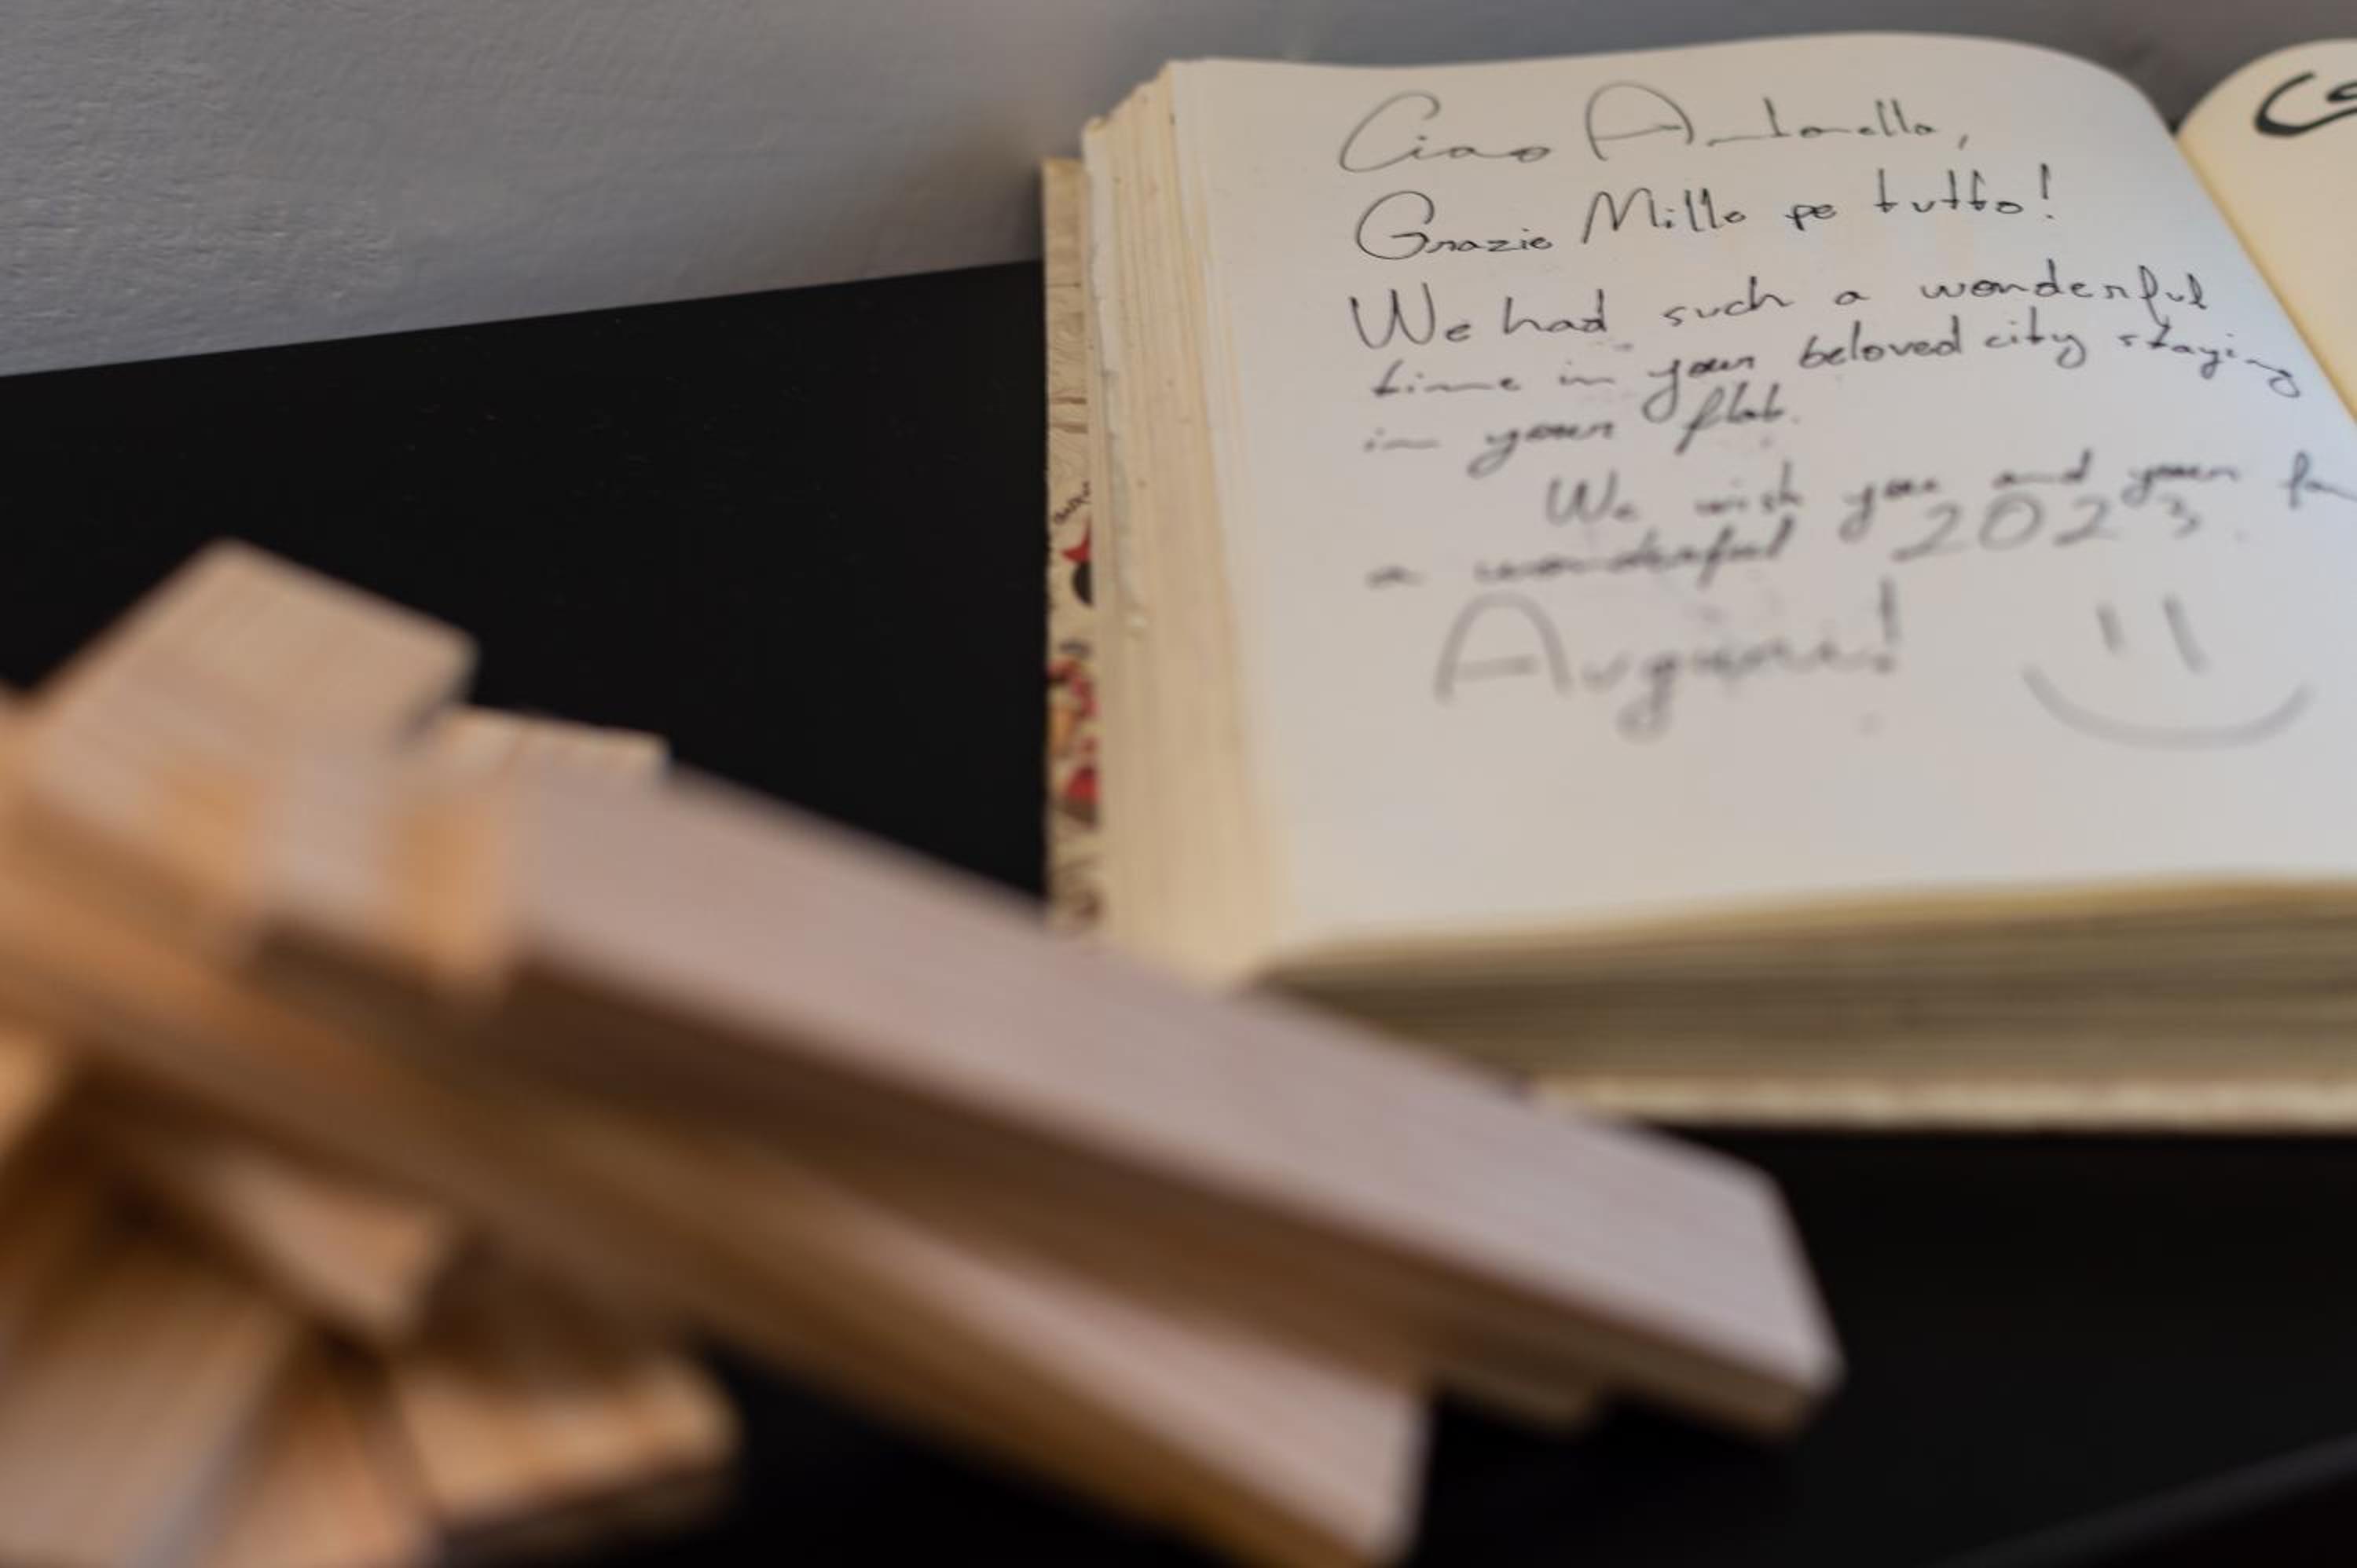 Ciao Antonella,
Grazie Mille pe tutto!
We had such a wonderful
time in your beloved city staying
in your flat.
We wish you and your fa
a wonderful 2023.
Auguri!